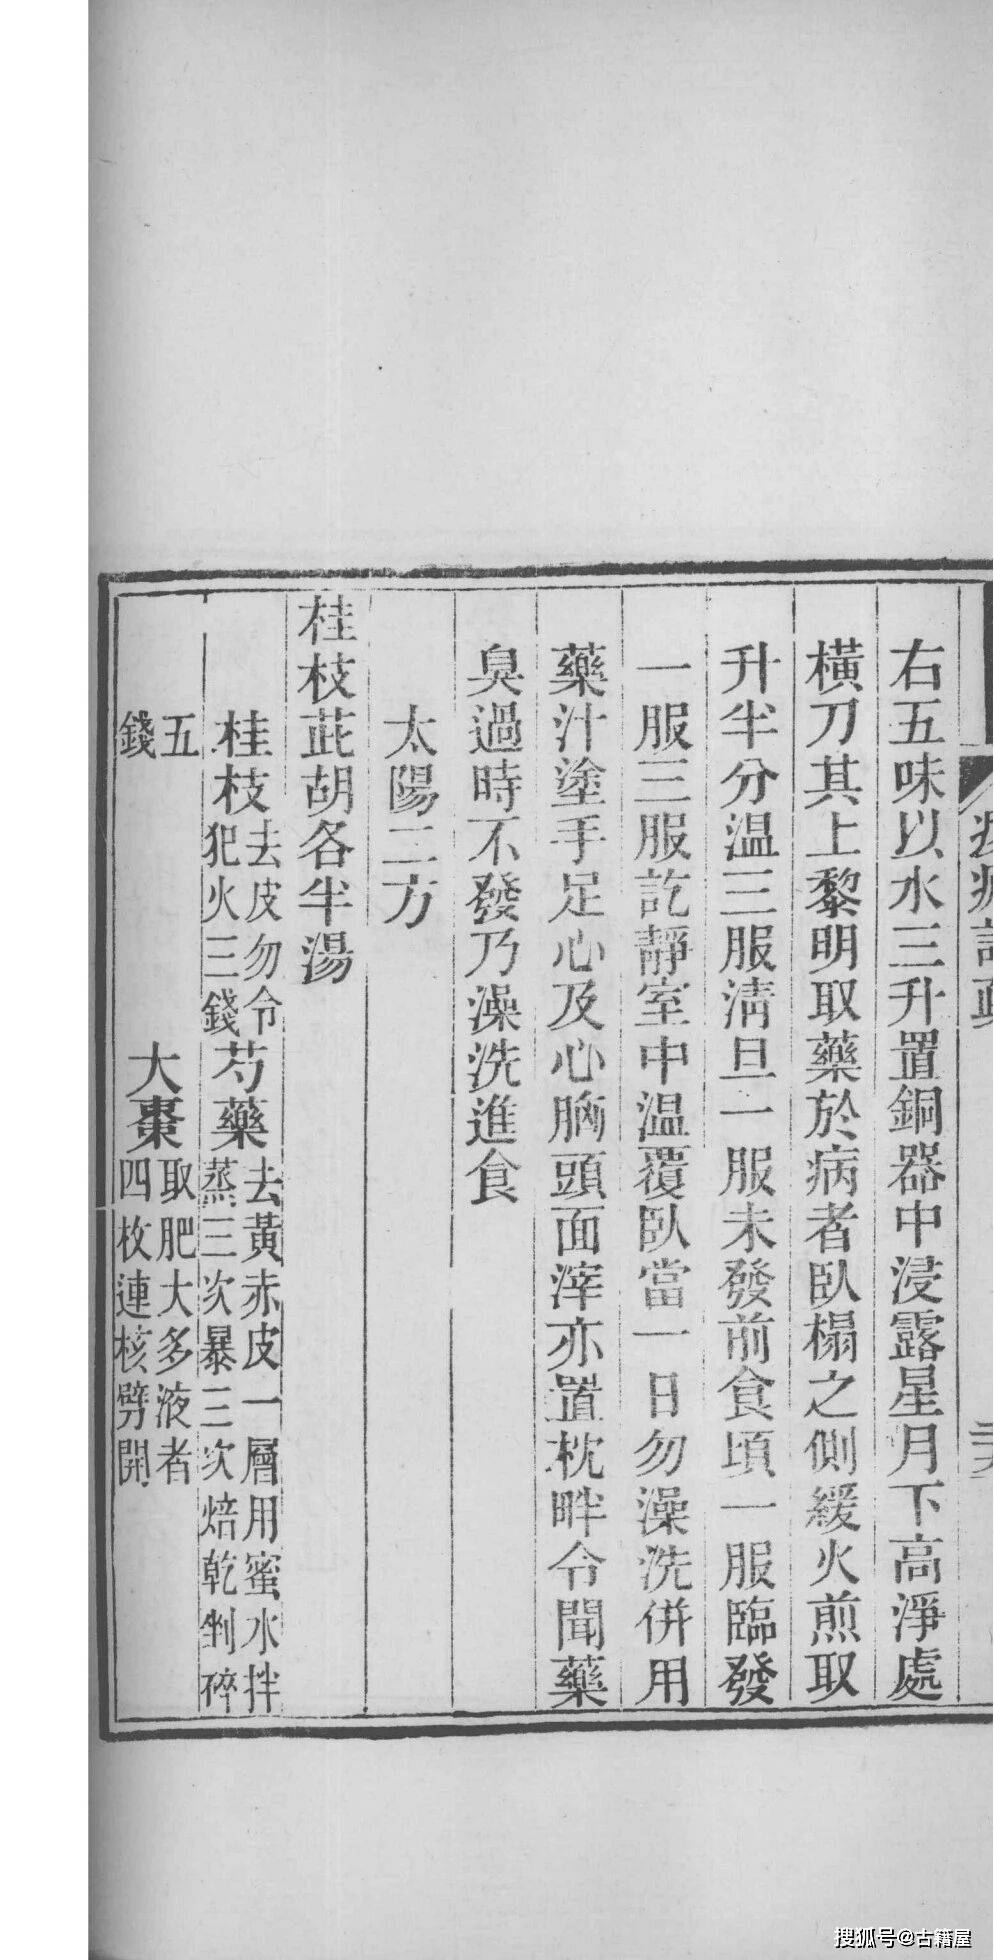 右五味以水三升置銅器中浸露星月下高淨處
橫刀其上黎明取藥於病者臥榻之側緩火煎取
升半分温三服清旦一服未發前食頃一服臨發
一服三服訖靜室中温覆臥當一日勿澡洗併用
藥汁塗手足心及心胸頭面滓亦置枕畔令聞藥
臭過時不發乃澡洗進食
太陽二方
桂枝茈胡各半湯
桂枝去皮勿令犯火三錢芍藥去黃赤皮一層用蜜水拌蒸三次暴三次焙乾剉碎
五錢 大棗取肥大多液者四枚連核劈開
搜狐号@古籍屋